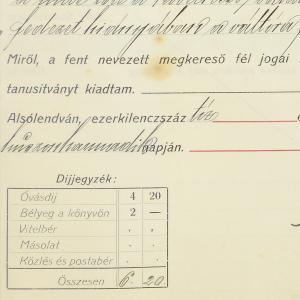 fedezet hiányában a váltóra
Miről, a fent nevezett megkereső fél jogai
tanusítványt kiadtam.
Alsólendván, ezerkilenczszáz tíz
huszonharmadik napján.
Díjjegyzék:
Óvásdíj 4 20
Bélyeg a könyvön 2 —
Vitelbér . .
Másolat . .
Közlés és postabér . .
Összesen 6. 20